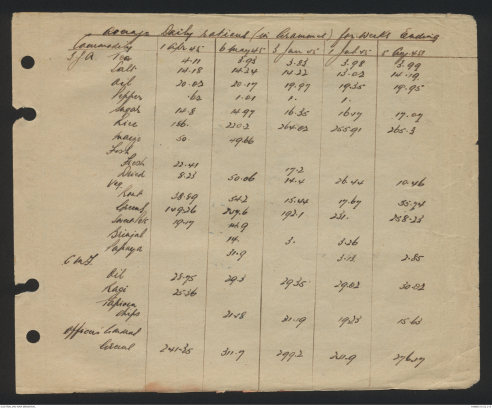 Average Daily rations (in Grammes) for Weeks Ending
Commodity 1 Apr 45 6 May 45 3 Jun 45 1 Jul 45 5 Aug 45
IJA Tea 4.11 3.93 3.83 3.98 3.99
Salt 14.18 14.24 14.22 13.02 14.19
Oil 20.02 20.17 19.97 19.35 19.95
Pepper .62 1.01 1. 1.
Sugar 14.8 14.97 16.35 16.17 17.07
Rice 186. 220.2 264.02 255.91 265.3
Maize 50. 49.66
Fish
Fresh 22.41 17.2
Dried 8.23 50.06 14.4 26.44 10.46
Veg
Root 38.89 54.2 15.44 17.67 55.74
Green 149.26 247.6 192.1 231. 258.23
19.17 14.9
Brinjal 14. 3. 3.26
Papaya 31.9 3.13 2.85
Oil 28.75 29.3 29.35 29.82 30.02
Ragi 25.36
Tapioca
chips 21.18 21.19 19.33 15.63
Officers
241.35 311.7 299.2 276.17